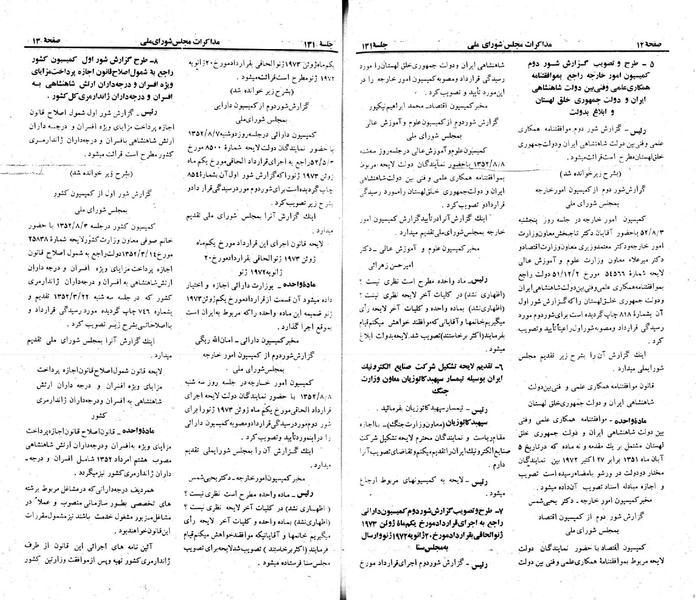 صفحهٔ ۱۲
مذاکرات مجلس شورای ملی
جلسهٔ ۱۳۱
۵ - طرح و تصویب گزارش شور دوم
کمیسیون امور خارجه راجع بموافقتنامه
همکاری علمی وفنی بین دولت شاهنشاهی
ایران و دولت جمهوری خلق لهستان
و ابلاغ بدولت
رئیس - گزارش شور دوم موافقتنامه همکاری
علمی و فنی بین دولت شاهنشاهی ایران ودولت جمهوری
خلق لهستان مطرح است قرائت میشود.
(بشرح زیر خوانده شد)
گزارش شور دوم از کمیسیون امور خارجه
بمجلس شورای ملی
کمیسیون امور خارجه در جلسه روز پنجشنبه
لایحه شمارهٔ ۵۴۵۶۶ مورخ ۵۱/۱۲/۲ دولت راجع
بموافقتنامه همکاری علمی وفنی بین دولت شاهنشاهی ایران
و دولت جمهوری خلق لهستان را که گزارش شور اول
آن بشمارهٔ ۸۱۸ چاپ گردیده است برای شور دوم مورد
رسیدگی قرارداد ومصوبه شور اول راعیناً تأیید وتصویب
کرد.
اینک گزارش آن را بشرح زیر تقدیم مجلس
شورایملی میدارد.
قانون موافقتنامه همکاری علمی و فنی بین دولت
شاهنشاهی ایران ودولت جمهوری خلق لهستان
مادهٔ واحده - موافقتنامه همکاری علمی و فنی
بین دولت شاهنشاهی ایران و دولت جمهوری خلق
لهستان مشتمل بر یک مقدمه و نه ماده که درتاریخ ۵
آبان ماه ۱۳۵۱ برابر ۲۷ اکتبر ۱۹۷۲ بین نمایندگان
مختار دودولت در ورشو بامضاء رسیده است تصویب
و اجازه مبادله اسناد تصویب آن داده میشود.
مخبر کمیسیون امور خارجه - دکتر یحیی شمس
گزارش شور دوم از کمیسیون اقتصاد
بمجلس شورای ملی
کمیسیون اقتصاد با حضور نمایندگان دولت
لایحه مربوط بموافقتنامهٔ همکاری علمی وفنی بین دولت
شاهنشاهی ایران ودولت جمهوری خلق لهستان را مورد
رسیدگی قرارداد ومصوبه کمیسیون امور خارجه را در
این مورد تأیید و تصویب کرد.
مخبر کمیسیون اقتصاد - محمد ابراهیم نیکپور
گزارش شور دوم از کمیسیون علوم و آموزش عالی
بمجلس شورای ملی
کمیسیون علوم و آموزش عالی در جلسه روز سه‌شنبه
۱۳۵۲/۸/۸ با حضور نمایندگان دولت لایحه مربوط
بموافقتنامه همکاری علمی و فنی بین دولت شاهنشاهی
ایران و دولت جمهوری خلق لهستان را مورد رسیدگی
قرارداد و تصویب کرد.
اینک گزارش آنرا در تأیید گزارش کمیسیون امور
خارجه تقدیم میدارد.
مخبر کمیسیون علوم و آموزش عالی - دکتر
امیرحسن زهرائی
رئیس - ماده واحده مطرح است نظری نیست؟
(اظهاری نشد) در کلیات آخر لایحه نظری نیست؟
(اظهاری نشد) بماده واحده و کلیات آخر لایحه رأی
میگیریم خانمها و آقایانی که موافقند خواهش میکنم قیام
بفرمایند (اکثر برخاستند) تصویب شد. لایحه بدولت ابلاغ
میشود.
۶- تقدیم لایحه تشکیل شرکت صنایع الکترونیک
ایران بوسیله تیمسار سپهبد کاتوزیان معاون وزارت
جنگ
رئیس - تیمسار سپهبد کاتوزیان بفرمائید.
سپهبد کاتوزیان (معاون وزارت جنگ) - با اجازه
مقام ریاست و نمایندگان محترم لایحه تشکیل شرکت
صنایع الکترونیک ایران را تقدیم میکنم و تقاضای تصویب آنرا
دارم.
رئیس - لایحه به کمیسیونهای مربوط ارجاع
میگردد.
۷- طرح وتصویب گزارش شور دوم کمیسیون دارائی
راجع به اجرای قرارداد مورخ یکم ماه ژوئن ۱۹۷۳
ژنو الحاقی بقرارداد مورخ ۲۰ ژانویه ۱۹۷۲ ژنو و ارسال
بمجلس سنا
رئیس - گزارش شور دوم اجرای قرارداد مورخ
جلسهٔ ۱۳۱
مذاکرات مجلس شورای ملی
صفحهٔ ۱۳
یکم ماه ژوئن ۱۹۷۳ ژنو الحاقی بقرارداد مورخ ۲۰ ژانویه
۱۹۷۲ ژنو مطرح است قرائت میشود.
(بشرح زیر خوانده شد)
گزارش شور دوم از کمیسیون دارایی
بمجلس شورای ملی
کمیسیون دارائی در جلسه روز دوشنبه ۱۳۵۲/۸/۷
با حضور نمایندگان دولت لایحهٔ شمارهٔ ۸۵۰۰ مورخ
۵۲/۵/۳ راجع به اجرای قرارداد الحاقی مورخ یکم ماه
ژوئن ۱۹۷۳ ژنو را که گزارش شور اول آن بشمارهٔ ۸۵۴
چاپ گردیده است برای شور دوم مورد رسیدگی قرارداد و
بشرح زیر تصویب کرد.
اینک گزارش آنرا بمجلس شورای ملی تقدیم
میدارد.
لایحه قانون اجرای این قرارداد مورخ یکم ماه
ژوئن ۱۹۷۳ ژنو الحاقی بقرارداد مورخ ۲۰
ژانویه ۱۹۷۲ ژنو
مادهٔ واحده - بوزارت دارائی اجازه و اختیار
داده میشود آن قسمت از قرارداد مورخ یکم ژوئن ۱۹۷۳
ژنو و ضمیمه این ماده واحده را که مربوط به ایران است
بموقع اجرا گذارد.
مخبر کمیسیون دارائی - امان‌الله ریگی
گزارش شور دوم از کمیسیون امور خارجه
بمجلس شورای ملی
کمیسیون امور خارجه در جلسه روز سه شنبه
۱۳۵۲/۸/۸ با حضور نمایندگان دولت لایحه اجرای
قرارداد الحاقی مورخ یکم ماه ژوئن ۱۹۷۳ ژنو را برای
شور دوم مورد رسیدگی قرارداد و مصوبه کمیسیون دارائی
را در این مورد تأیید و تصویب کرد.
اینک گزارش آن را بمجلس شورای ملی تقدیم
میدارد.
مخبر کمیسیون امور خارجه - دکتر یحیی شمس
رئیس - ماده واحده مطرح است نظری نیست؟
(اظهاری نشد) در کلیات آخر لایحه نظری نیست؟
(اظهاری نشد) بماده واحده و کلیات آخر لایحه رأی
میگیریم خانمها و آقایانیکه موافقند خواهش میکنم قیام
بفرمایند (اکثر برخاستند) تصویب شد لایحه برای تصویب
مجلس سنا فرستاده میشود.
۸- طرح گزارش شور اول کمیسیون کشور
راجع به اصلاح قانون اجازه پرداخت مزایای
افسران و درجه‌داران ارتش شاهنشاهی به
افسران و درجه‌داران ژاندارمری کل کشور.
رئیس - گزارش شور اول شمول اصلاح قانون
اجازه پرداخت مزایای ویژه افسران و درجه داران
ارتش شاهنشاهی به افسران و درجه‌داران ژاندارمری
کشور مطرح است قرائت میشود.
(بشرح زیر خوانده شد)
گزارش شور اول از کمیسیون کشور
بمجلس شورای ملی
کمیسیون کشور در جلسه ۱۳۵۲/۸/۳ با حضور
خانم صوفی معاون وزارت کشور لایحه شمارهٔ ۲۵۸۳۸
مورخ ۱۳۵۲/۳/۱۴ دولت راجع به شمول اصلاح قانون
اجازه پرداخت مزایای ویژه افسران و درجه‌داران
ارتش شاهنشاهی به افسران و درجه‌داران ژاندارمری
کشور که در جلسه سه شنبه ۱۳۵۲/۳/۲۲ تقدیم و
بشمارهٔ ۷۴۶ چاپ گردیده مورد رسیدگی قرارداد و
با اصلاحاتی بشرح زیر تصویب کرد.
اینک گزارش آنرا بمجلس شورای ملی تقدیم
میدارد.
لایحه قانون شمول اصلاح قانون اجازه پرداخت
مزایای ویژه افسران و درجه داران ارتش
شاهنشاهی به افسران و درجه‌داران ژاندارمری
کشور
مادهٔ واحده - قانون اصلاح قانون اجازه پرداخت
مزایای ویژه به افسران و درجه‌داران ارتش شاهنشاهی
مصوب هشتم امرداد ۱۳۵۲ شامل افسران و درجه-
داران ژاندارمری کشور نیز میگردد.
همردیف درجه‌دارانی که در مشاغل مربوط برشته
های تخصصی بطور سازمانی منصوب و عملاً در
مشاغل مزبور مشغول خدمت باشند نیز مشمول مقررات
این قانون خواهند بود.
آئین نامه های اجرائی این قانون از طرف
ژاندارمری کشور تهیه و پس از موافقت وزارتین کشور